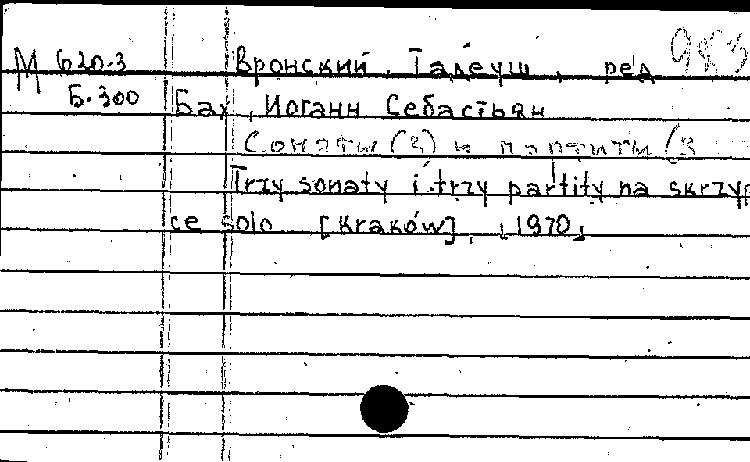 М 620.3 Вронский, Тадеуш, ред 983
Б.300 Бах, Иоганн Себастьян
Сонаты (3) и партиты (3
Trzy sonaty i trzy partity na skrzyp
ce solo [Kraków], 1970,